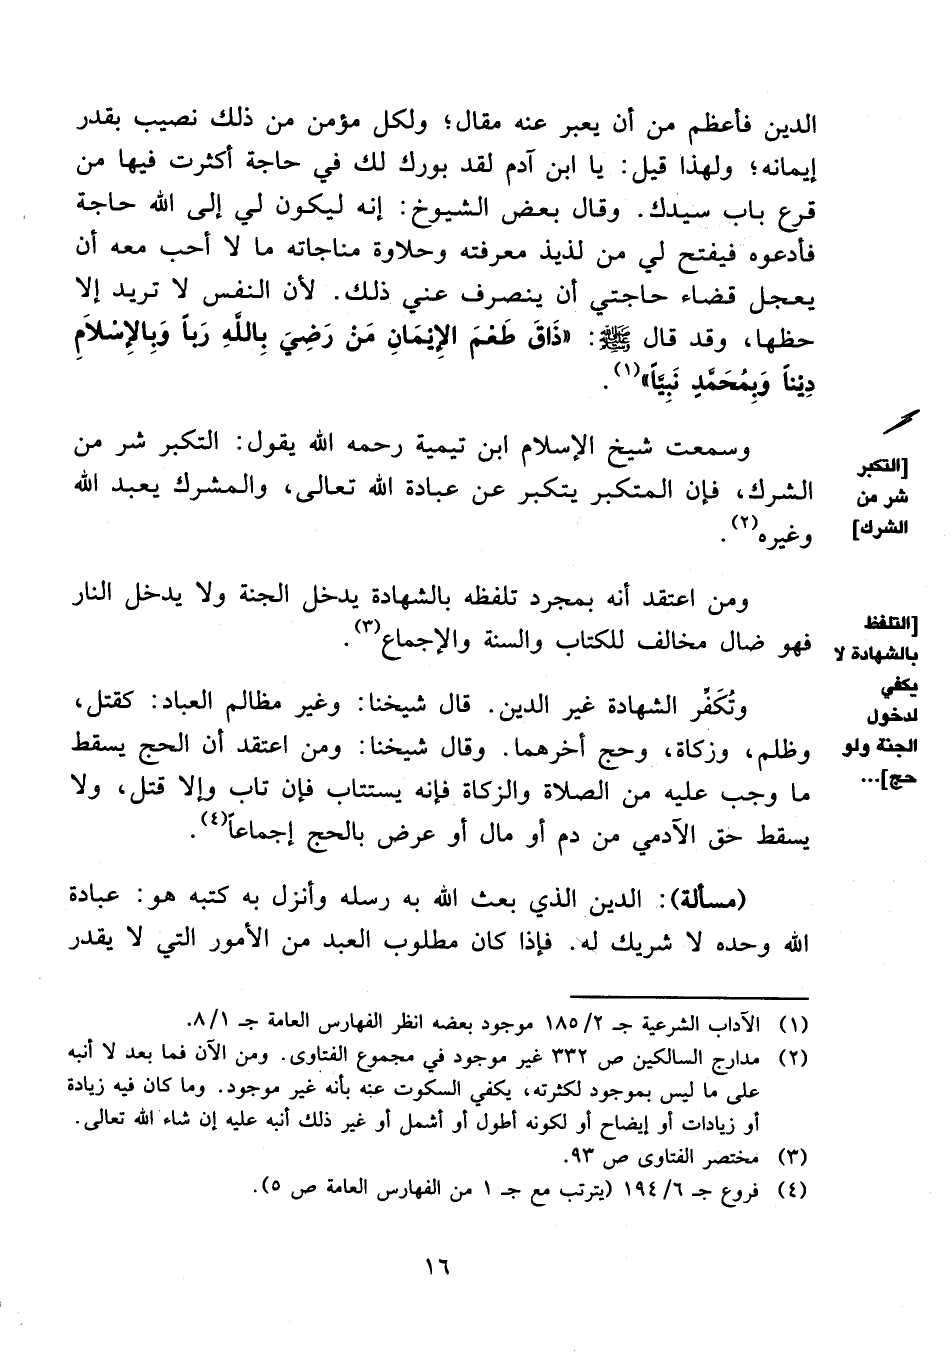 الدين فأعظم من أن يعبر عنه مقال؛ ولكل مؤمن من ذلك نصيب بقدر
إيمانه؛ ولهذا قيل: يا ابن آدم لقد بورك لك في حاجة أكثرت فيها من
قرع باب سيدك. وقال بعض الشيوخ: إنه ليكون لي إلى الله حاجة
فأدعوه فيفتح لي من لذيذ معرفته وحلاوة مناجاته ما لا أحب معه أن
يعجل قضاء حاجتي أن ينصرف عني ذلك. لأن النفس لا تريد إلا
حظها، وقد قال ﷺ: «ذَاقَ طَعْمَ الإِيْمَانِ مَنْ رَضِيَ بِاللَّهِ رَباً وَبِالإِسْلاَمِ
دِيْناً وَبِمُحَمَّدٍ نَبِيَّاً»(١).
وسمعت شيخ الإسلام ابن تيمية رحمه الله يقول: التكبر شر من
الشرك، فإن المتكبر يتكبر عن عبادة الله تعالى، والمشرك يعبد الله
وغيره(٢).
[التكبر
شر من
الشرك]
ومن اعتقد أنه بمجرد تلفظه بالشهادة يدخل الجنة ولا يدخل النار
فهو ضال مخالف للكتاب والسنة والإجماع(٣).
[التلفظ
بالشهادة لا
يكفي
لدخول
الجنة ولو
حج]...
وتُكَفِّر الشهادة غير الدين. قال شيخنا: وغير مظالم العباد: كقتل،
وظلم، وزكاة، وحج أخرهما. وقال شيخنا: ومن اعتقد أن الحج يسقط
ما وجب عليه من الصلاة والزكاة فإنه يستتاب فإن تاب وإلا قتل، ولا
يسقط حق الآدمي من دم أو مال أو عرض بالحج إجماعاً(٤).
(مسألة): الدين الذي بعث الله به رسله وأنزل به كتبه هو: عبادة
الله وحده لا شريك له. فإذا كان مطلوب العبد من الأمور التي لا يقدر
(١) الآداب الشرعية جـ ١٨٥/٢ موجود بعضه انظر الفهارس العامة جـ ٨/١.
(٢) مدارج السالكين ص ٣٣٢ غير موجود في مجموع الفتاوى. ومن الآن فما بعد لا أنبه
على ما ليس بموجود لكثرته، يكفي السكوت عنه بأنه غير موجود. وما كان فيه زيادة
أو زيادات أو إيضاح أو لكونه أطول أو أشمل أو غير ذلك أنبه عليه إن شاء الله تعالى.
(٣) مختصر الفتاوى ص ٩٣.
(٤) فروع جـ ١٩٤/٦ (يترتب مع جـ ١ من الفهارس العامة ص ٥).
١٦